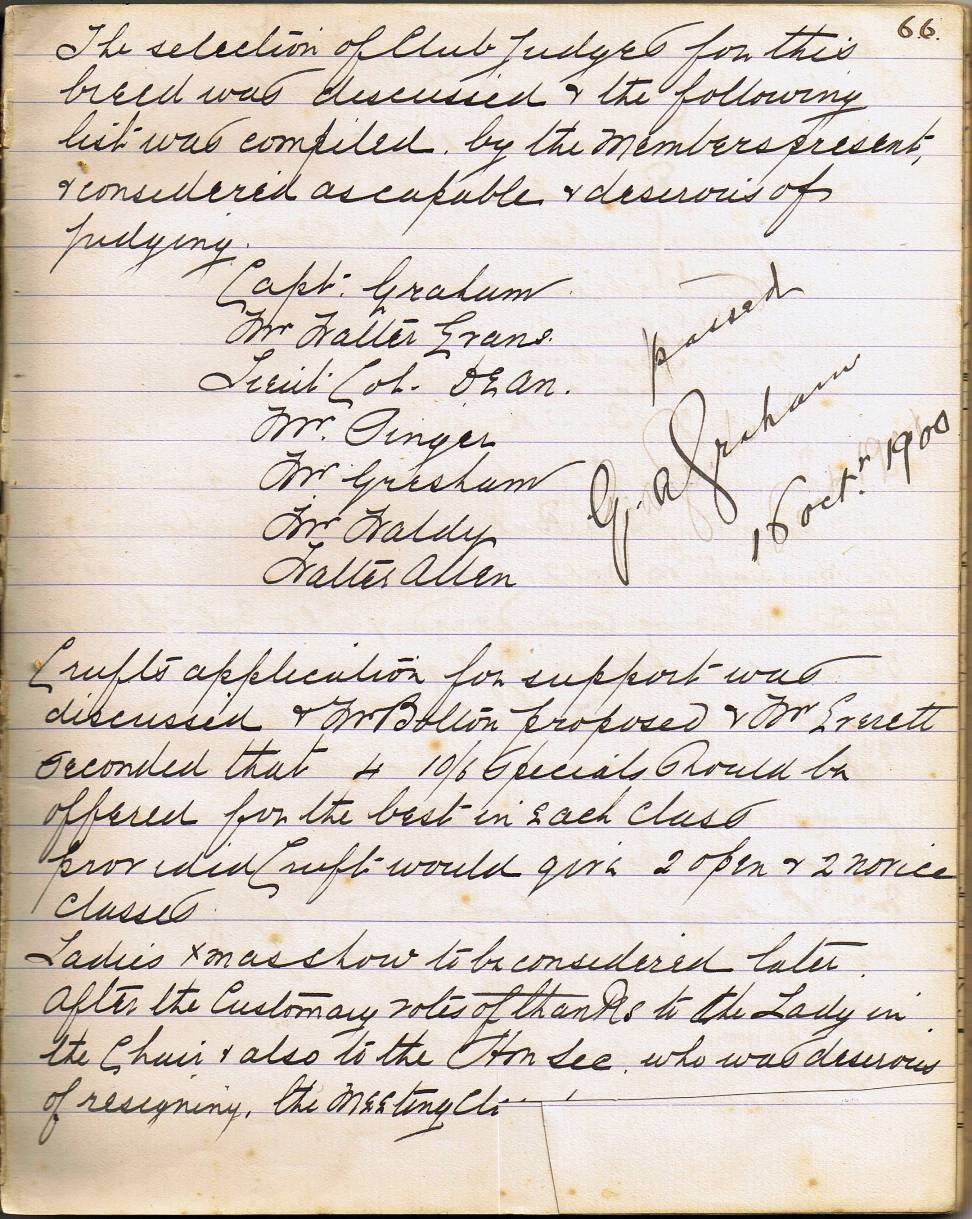 66.
The selection of Club Judges for this
breed was discussed & the following
list was compiled. by the Members present,
& considered as capable & deserous of
judging.
Capt. Graham
Mr Walter Evans.
Lieut Col. DEan.
Mr. Singer
Mr Gresham
Mr Waldy
Walter Allen
passed
G. A. Graham
16 Octr. 1900
Crufts application for support was
discussed & Mr Bolton proposed & Mr Everett
seconded that 4 10/6 Specials Should be
offered for the best in Each Class
provided Cruft would give 2 open & 2 novice
Classes
Ladies Xmas show to be considered later.
After the Customary votes of thanks to the Lady in
the Chair & also to the Hon Sec. who was deserous
of resigning, the MEEting